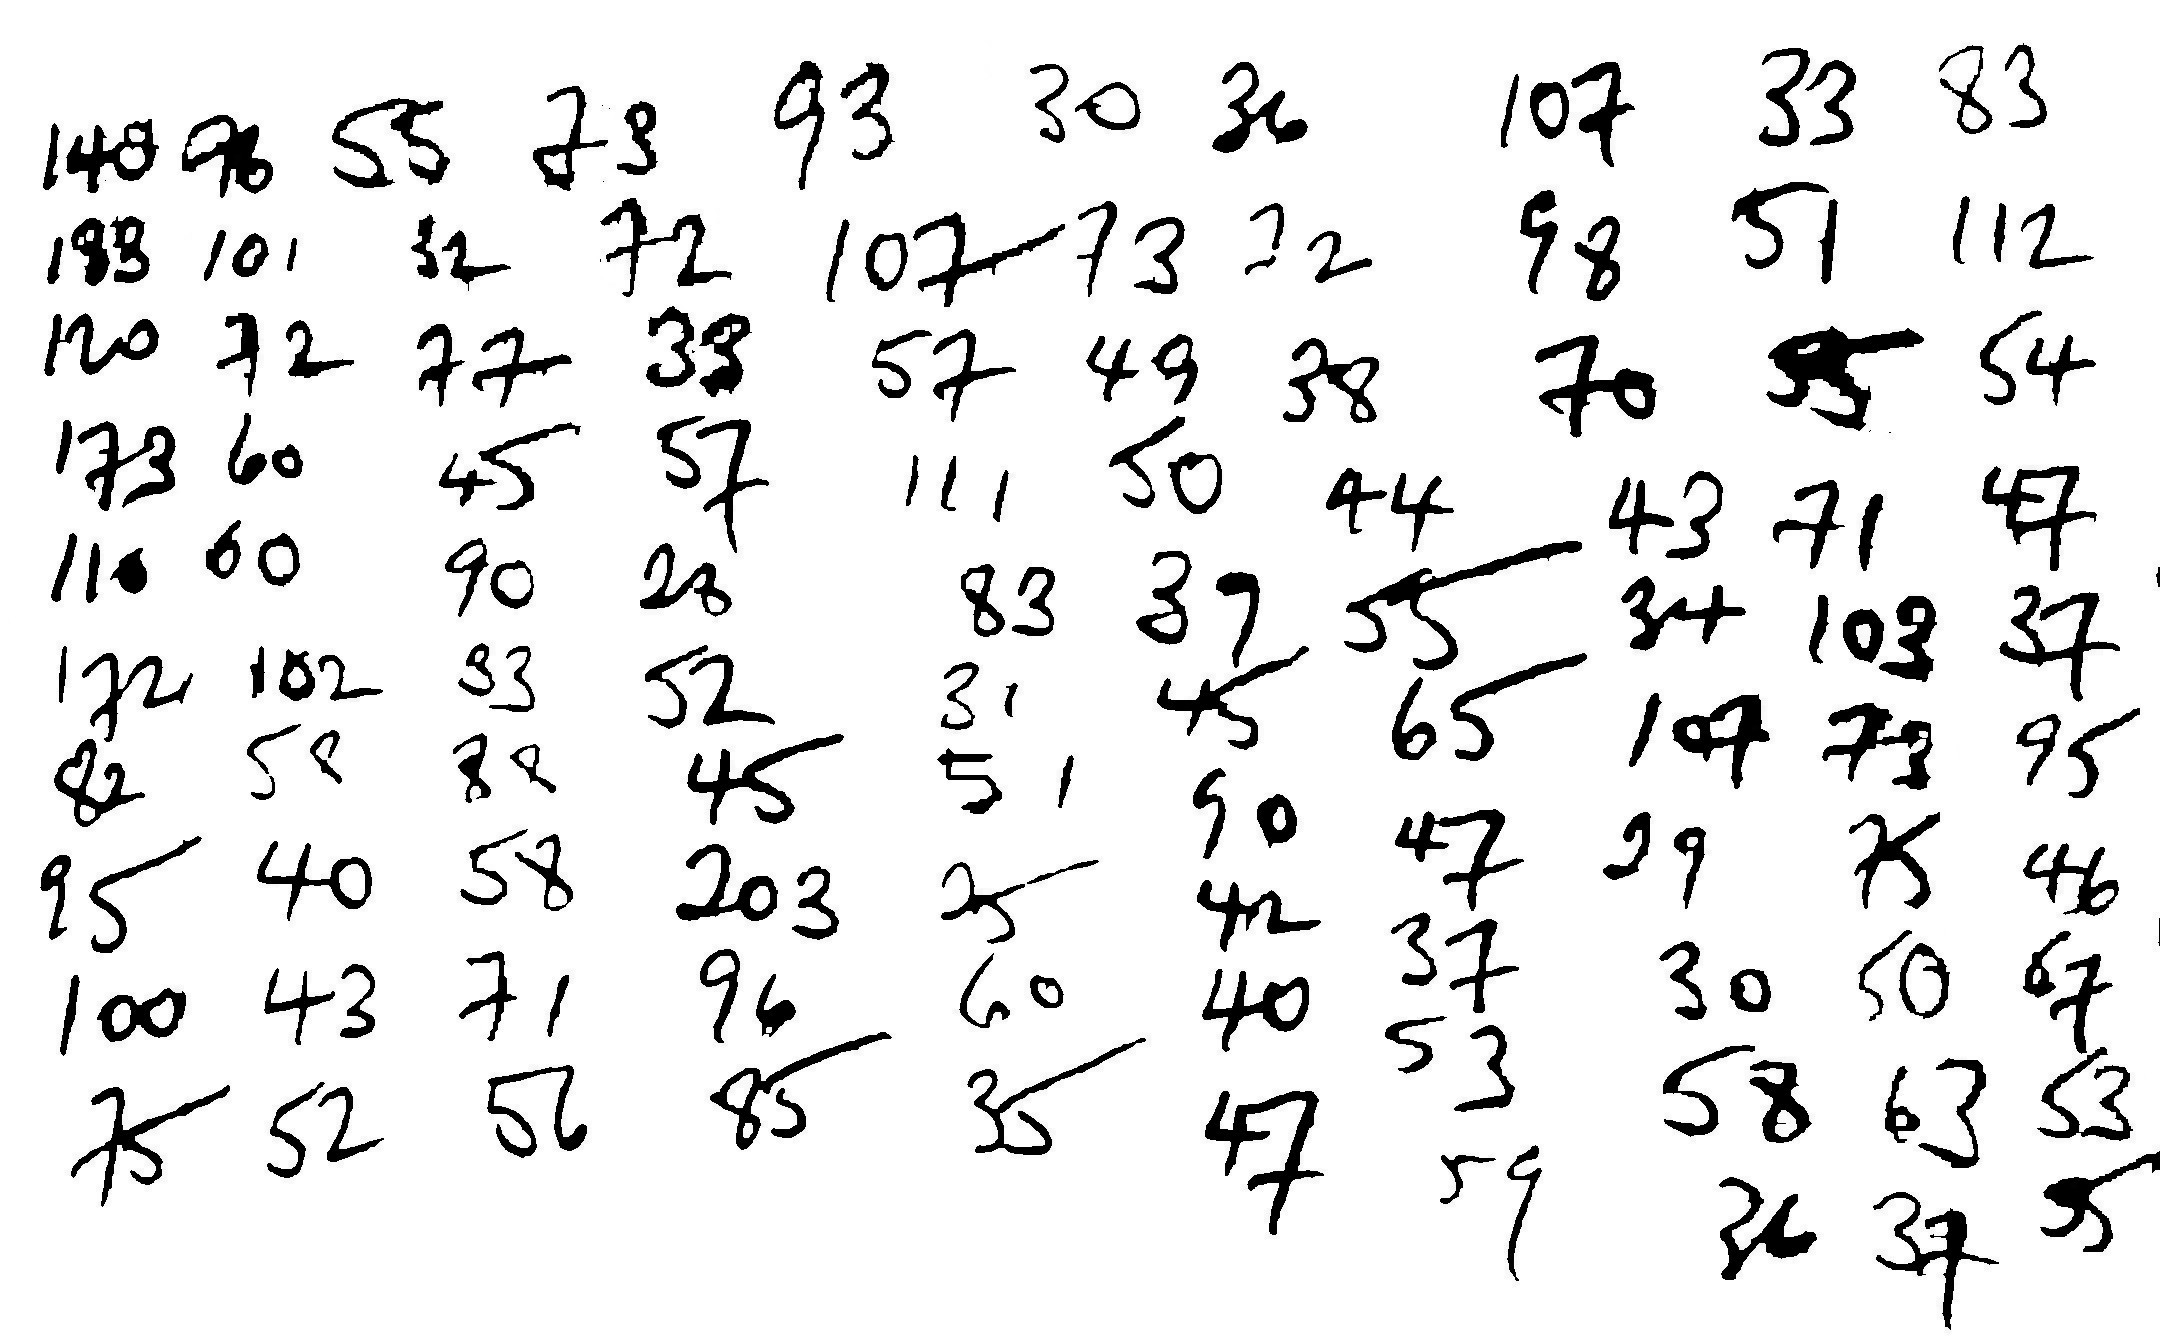 140 96 55 73 93 30 36 107 33 83
183 101 32 72 107 73 72 98 51 112
120 72 77 33 57 49 38 70 55 54
173 60 45 57 111 50 44 43 71 47
110 60 90 28 83 39 55 34 103 37
172 102 93 52 31 45 65 107 73 95
82 58 88 45 51 90 47 29 75 46
95 40 58 203 25 42 37 30 50 67
100 43 71 96 60 40 53 58 63 53
75 52 56 85 35 47 59 36 37 55